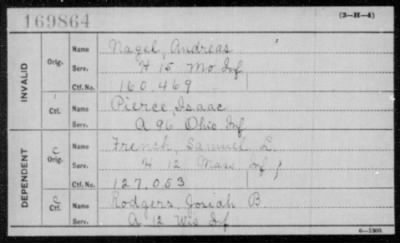 169864
(3-H-4)
INVALID
Orig.
Name Nagel, Andreas
Serv. H 15 Mo Inf
Ctf. No. 160,469
Ctf.
Name Pierce, Isaac
Serv. A 96 Ohio Inf
DEPENDENT
C
Orig.
Name French, Samuel L.
Serv. H 12 Mass Inf
Ctf. No. 127,053
C
Ctf.
Name Rodgers, Josiah B.
Serv. A 12 Wis Inf